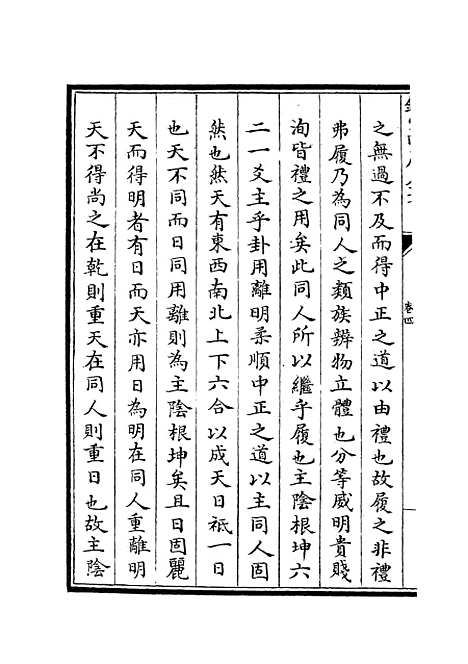 之無過不及而得中正之道以由禮也故履之非禮
弗履乃為同人之類族辨物立體也分等威明貴賤
洵皆禮之用矣此同人所以繼乎履也主陰根坤六
二一爻主乎卦用離明柔順中正之道以主同人固
然也然天有東西南北上下六合以成天日祗一日
也天不同而日同用離則為主陰根坤矣且日固麗
天而得明者有日而天亦用日為明在同人重離明
天不得尚之在乾則重天在同人則重日也故主陰
卷四